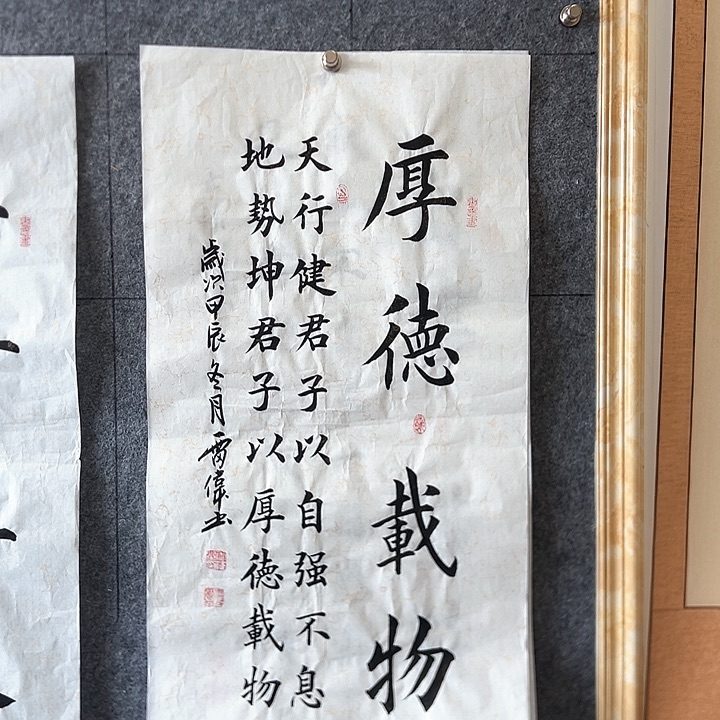 厚德載物
天行健君子以自强不息
地勢坤君子以厚德載物
歲次甲辰冬月雷偉书